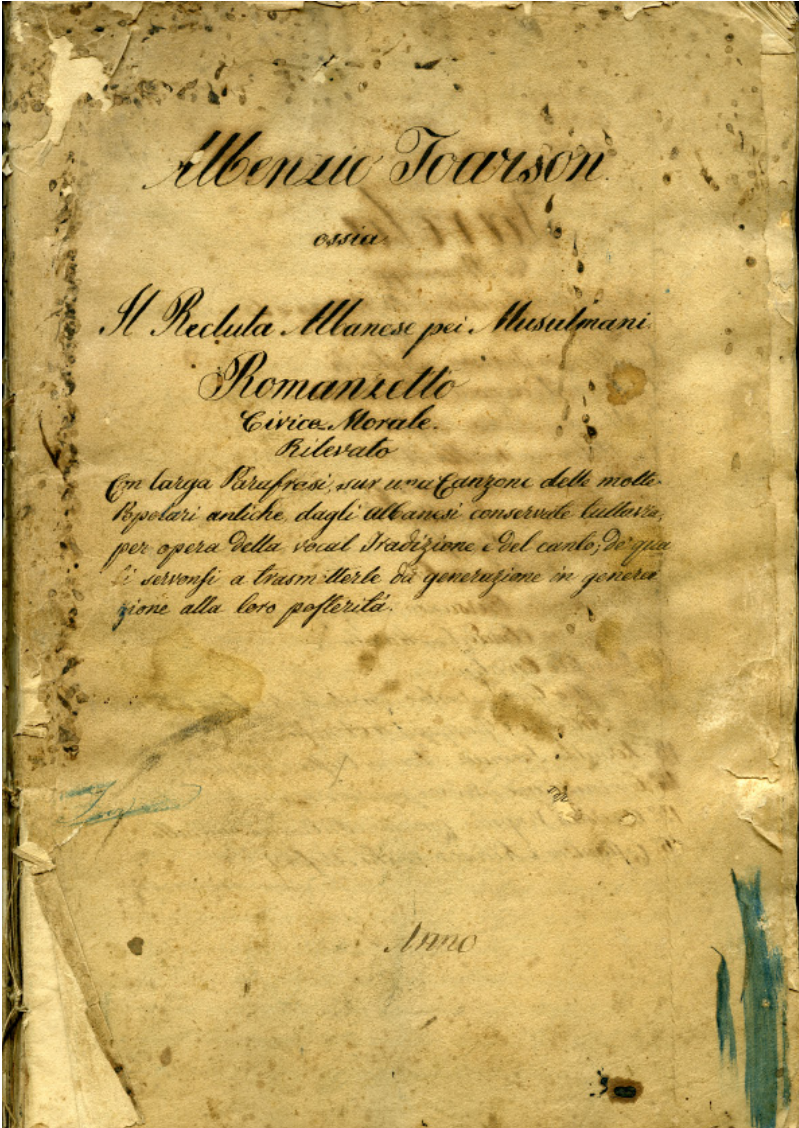 Albenzio Toarson
ossia
Il Recluta Albanese pei Musulmani
Romanzetto
Civico-Morale.
Rilevato
Con larga Parafrasi, sur una Canzone delle molte
Popolari antiche, dagli Albanesi conservate tuttavia,
per opera della vocal Tradizione e del canto, de' qua
li servonsi a trasmetterle da generazione in genera
zione alla loro posterità.
Anno